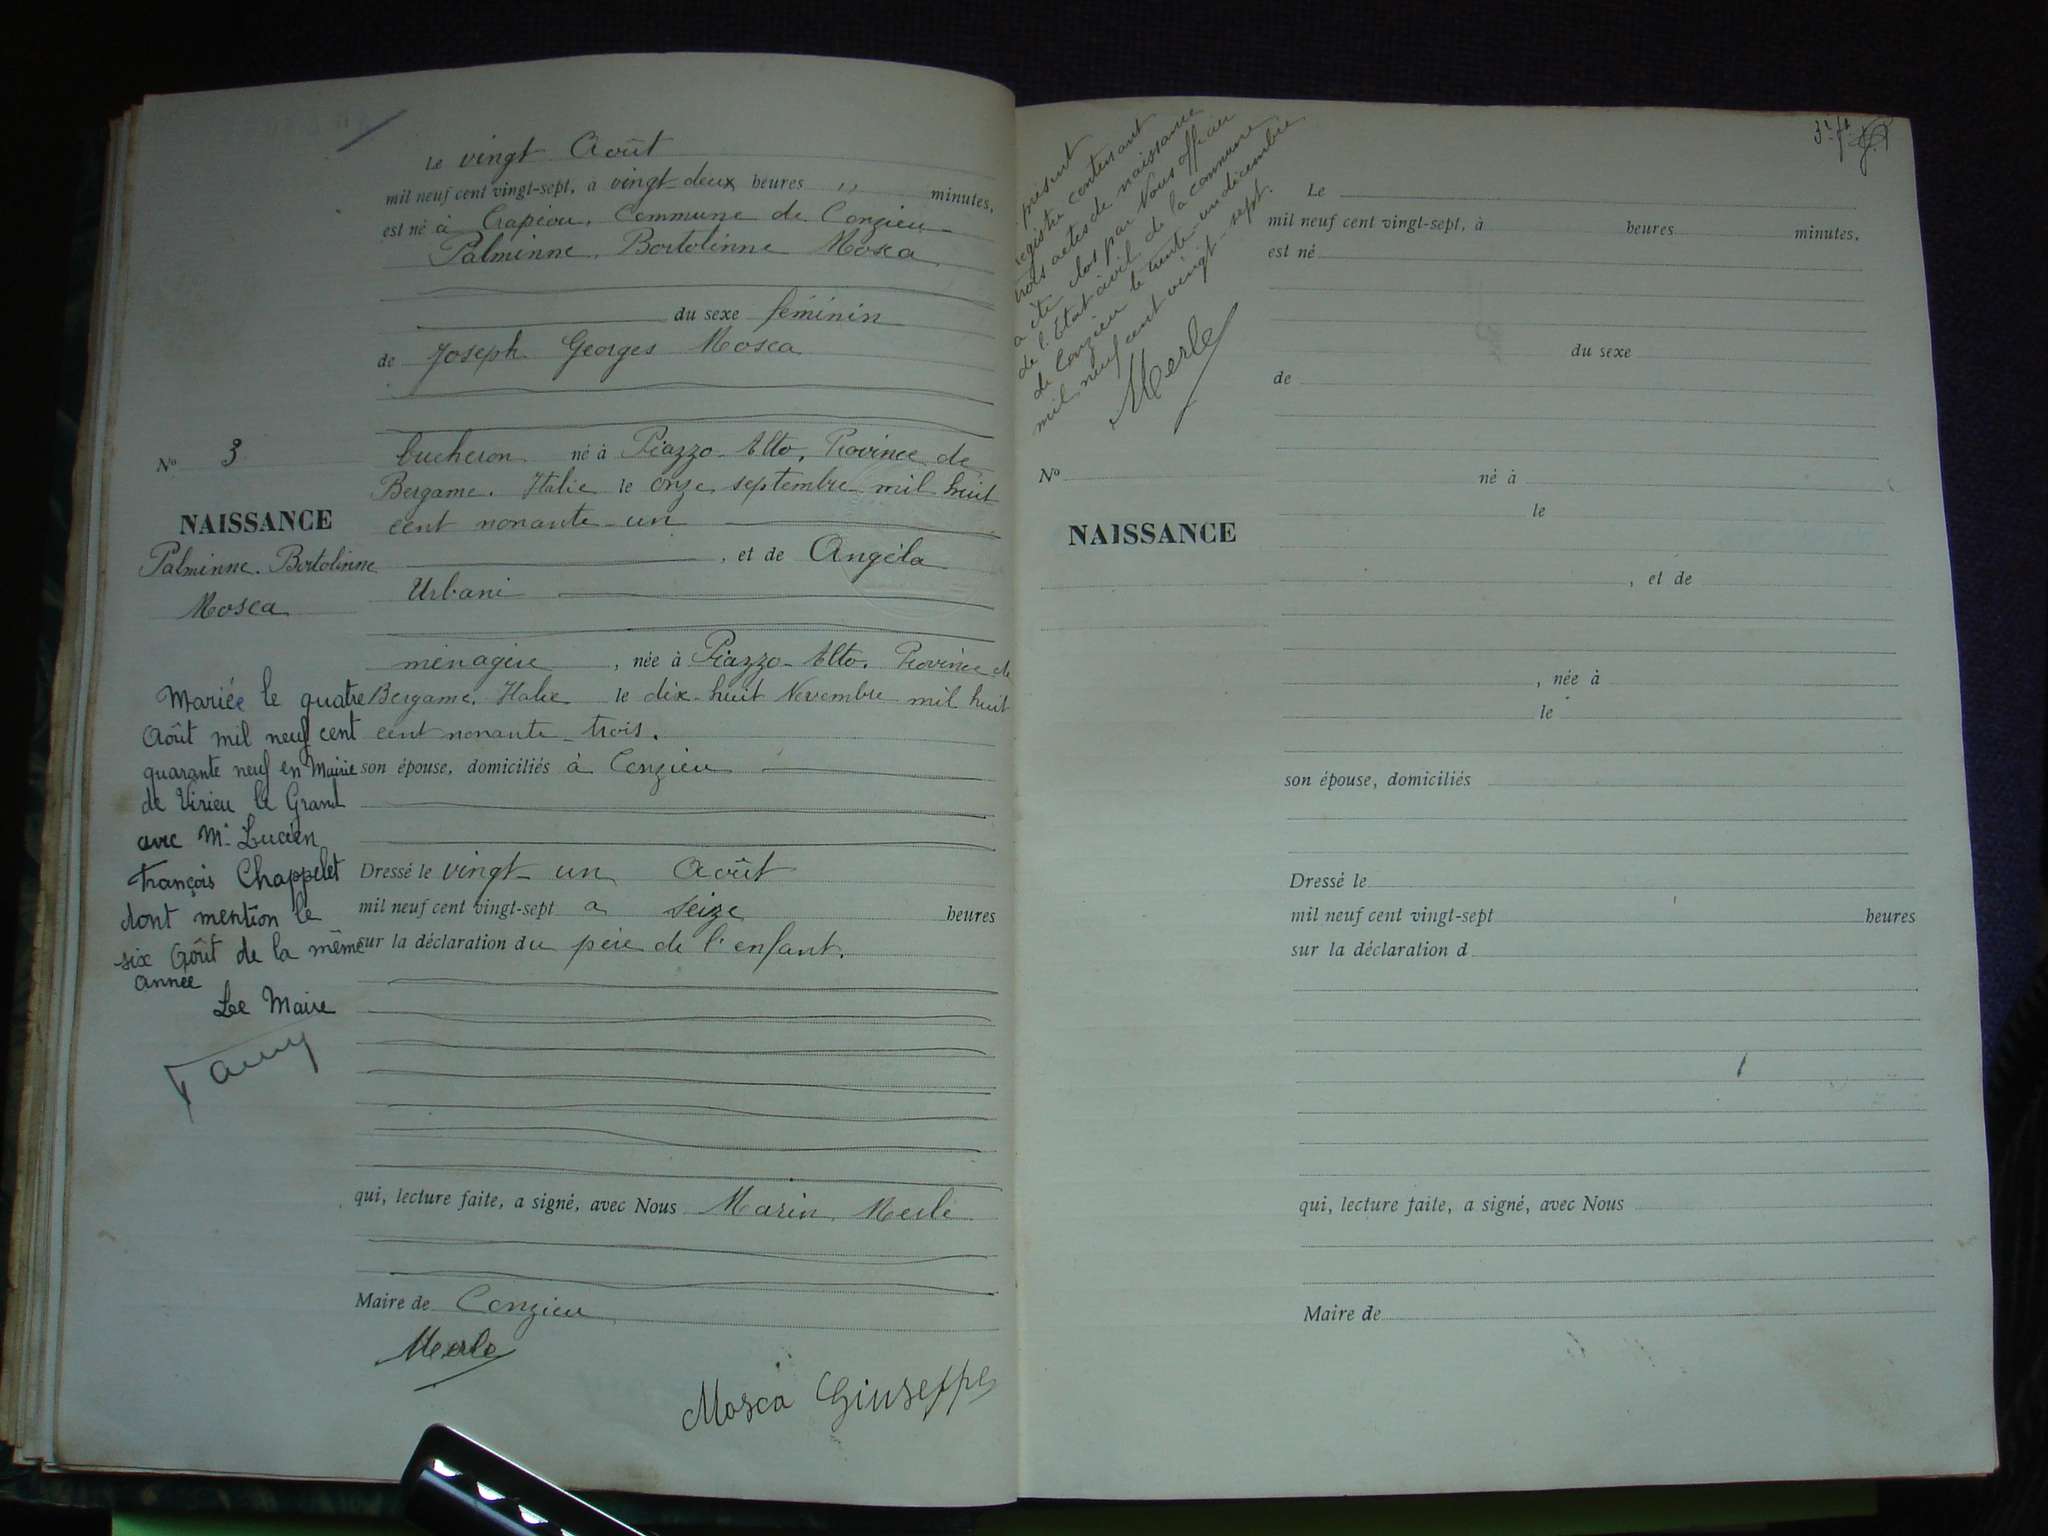 Le vingt Août
mil neuf cent vingt-sept, à vingt-deux heures " minutes,
est né à Crapéou, Commune de Conzieu
Palminne, Bortolinne Mosca
du sexe féminin
de Joseph Georges Mosca
N° 3
bucheron né à Piazzo-Alto, Province de
Bergame, Italie le onze septembre mil huit
cent nonante-un
NAISSANCE
Palminne, Bortolinne
Mosca
, et de Angéla
Urbani
ménagère, née à Piazzo-Alto, Province de
Bergame, Italie le dix-huit Novembre mil huit
cent nonante-trois.
son épouse, domiciliés à Conzieu
Mariée le quatre
Août mil neuf cent
quarante neuf en Mairie
de Virieu le Grand
avec Mr Lucien
François Chappelet
dont mention le
six Août de la même
année
Le Maire
Dressé le vingt-un Août
mil neuf cent vingt-sept à seize heures
sur la déclaration du père de l'enfant.
qui, lecture faite, a signé, avec Nous Marin Merle
Maire de Conzieu
Merle
Mosca Giuseppe
présent
registre contenant
trois actes de naissance
a été clos par Nous officier
de l'Etat civil de la commune
de Conzieu le trente-un décembre
mil neuf cent vingt-sept.
Merle
Le
mil neuf cent vingt-sept, à heures minutes,
est né
du sexe
de
N°
né à
le
NAISSANCE
, et de
, née à
le
son épouse, domiciliés
Dressé le
mil neuf cent vingt-sept heures
sur la déclaration d
qui, lecture faite, a signé, avec Nous
Maire de